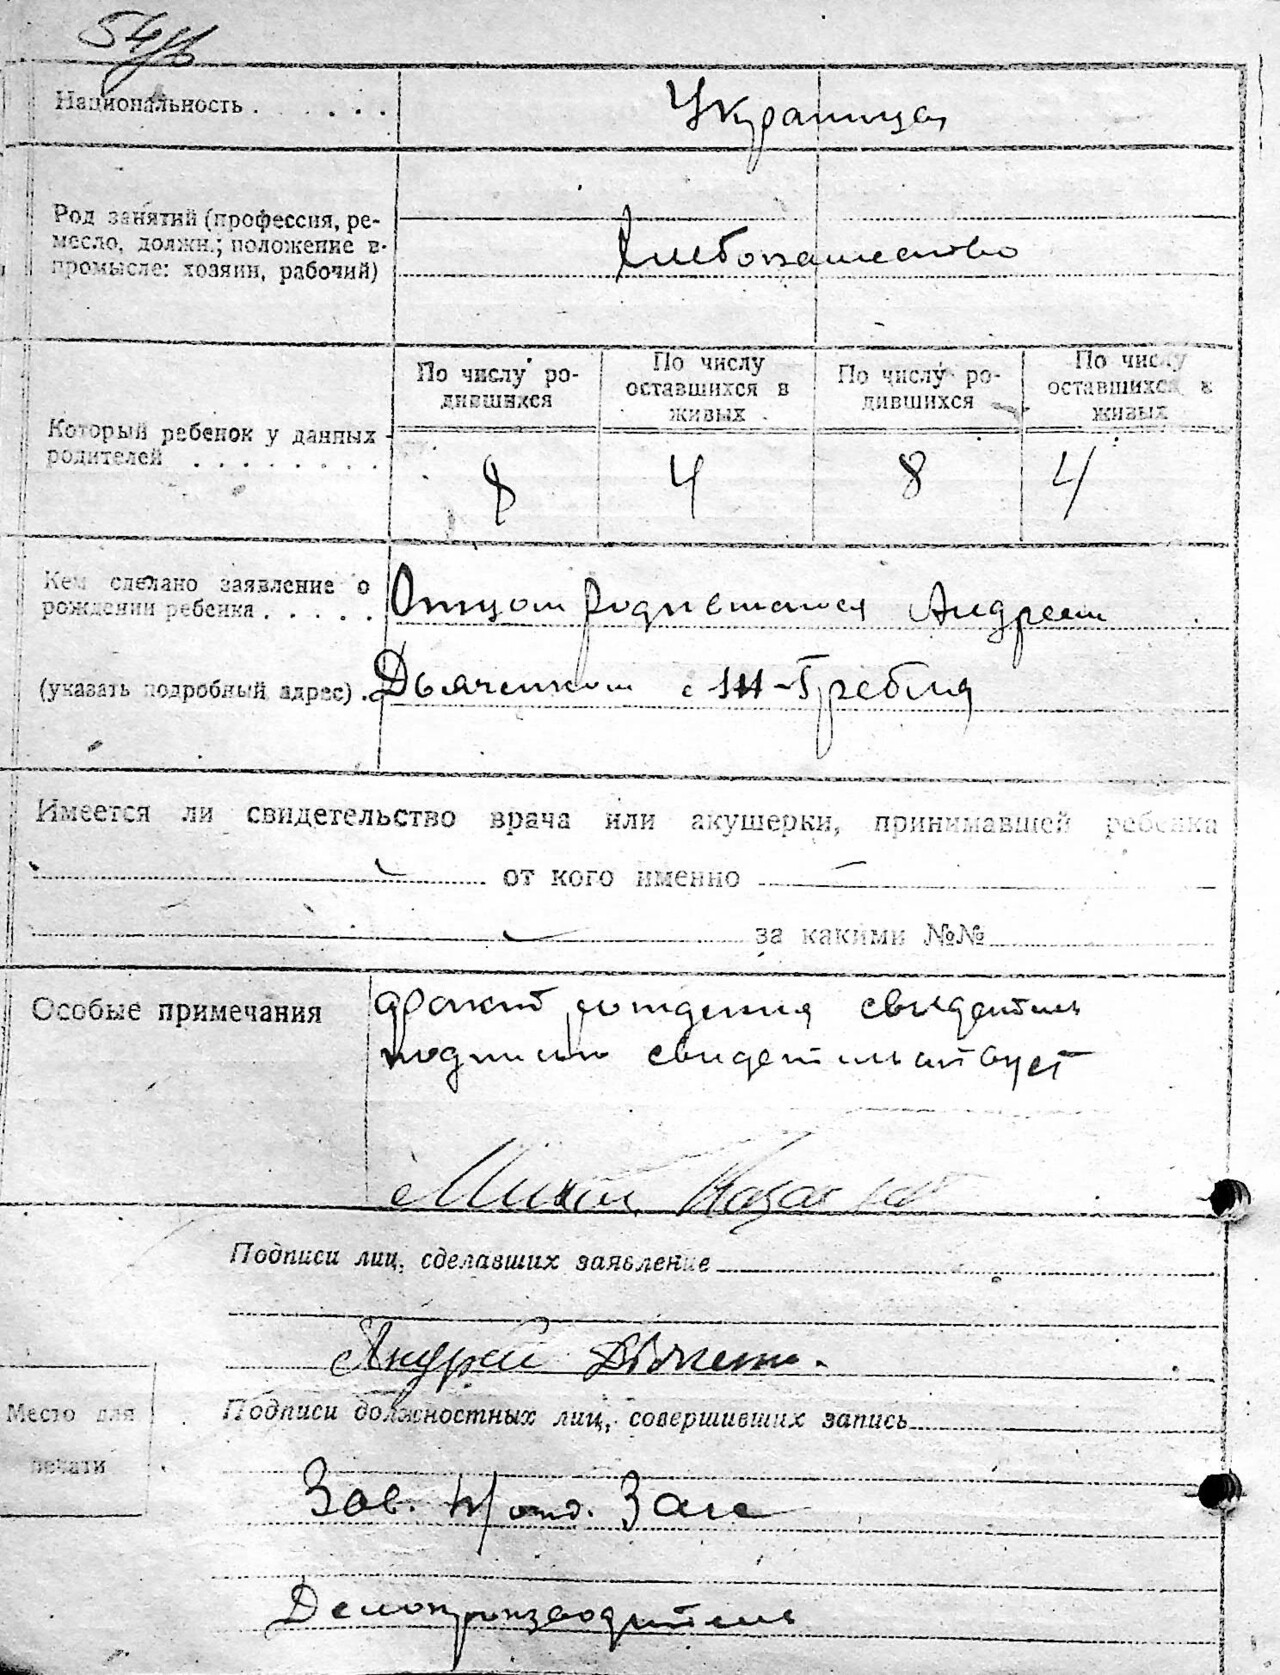 54
Национальность . . . . . .
Украинцы
Род занятий (профессия, ре-
месло, должн.; положение в
промысле: хозяин, рабочий)
Хлебопашество
Который ребенок у данных
родителей . . . . . . . .
По числу ро-
дившихся
По числу
оставшихся в
живых
По числу ро-
дившихся
По числу
оставшихся в
живых
8 4 8 4
Кем сделано заявление о
рождении ребенка . . . . .
Отцом родившегося Андреем
(указать подробный адрес) . Дьяченком с -Гребля
Имеется ли свидетельство врача или акушерки, принимавшей ребенка
от кого именно
за какими №№
Особые примечания
факт рождения свидетель
подписью свидетельствует
Подписи лиц, сделавших заявление
Андрей
Подписи должностных лиц, совершивших запись
Место для
печати
Зав. отд. Загс
Делопроизводитель